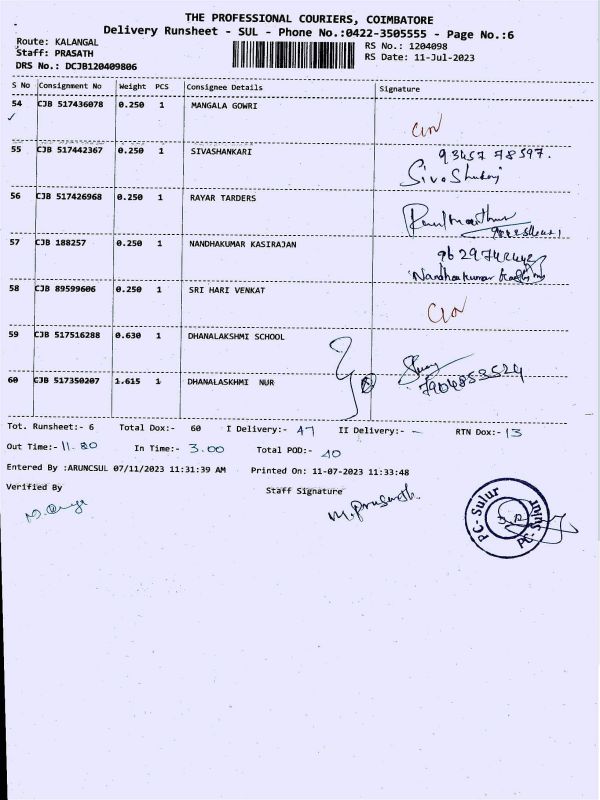 THE PROFESSIONAL COURIERS, COIMBATORE
Delivery Runsheet - SUL - Phone No.:0422-3505555 - Page No.:6
Route: KALANGAL RS No.: 1204098
Staff: PRASATH RS Date: 11-Jul-2023
DRS No.: DCJB120409806
S No Consignment No Weight PCS Consignee Details Signature
54 CJB 517436078 0.250 1 MANGALA GOWRI
✓
55 CJB 517442367 0.250 1 SIVASHANKARI 93457 78597.
56 CJB 517426968 0.250 1 RAYAR TARDERS
57 CJB 188257 0.250 1 NANDHAKUMAR KASIRAJAN
Nandhakumar
58 CJB 89599606 0.250 1 SRI HARI VENKAT
59 CJB 517516288 0.630 1 DHANALAKSHMI SCHOOL
60 CJB 517350207 1.615 1 DHANALASKHMI NUR 7904853524
Tot. Runsheet:- 6 Total Dox:- 60 I Delivery:- 47 II Delivery:- - RTN Dox:- 13
Out Time:- 11.80 In Time:- 3.00 Total POD:- 40
Entered By :ARUNCSUL 07/11/2023 11:31:39 AM Printed On: 11-07-2023 11:33:48
Verified By Staff Signature
M.Prasath.
PC-Sulur
PC-Sulur